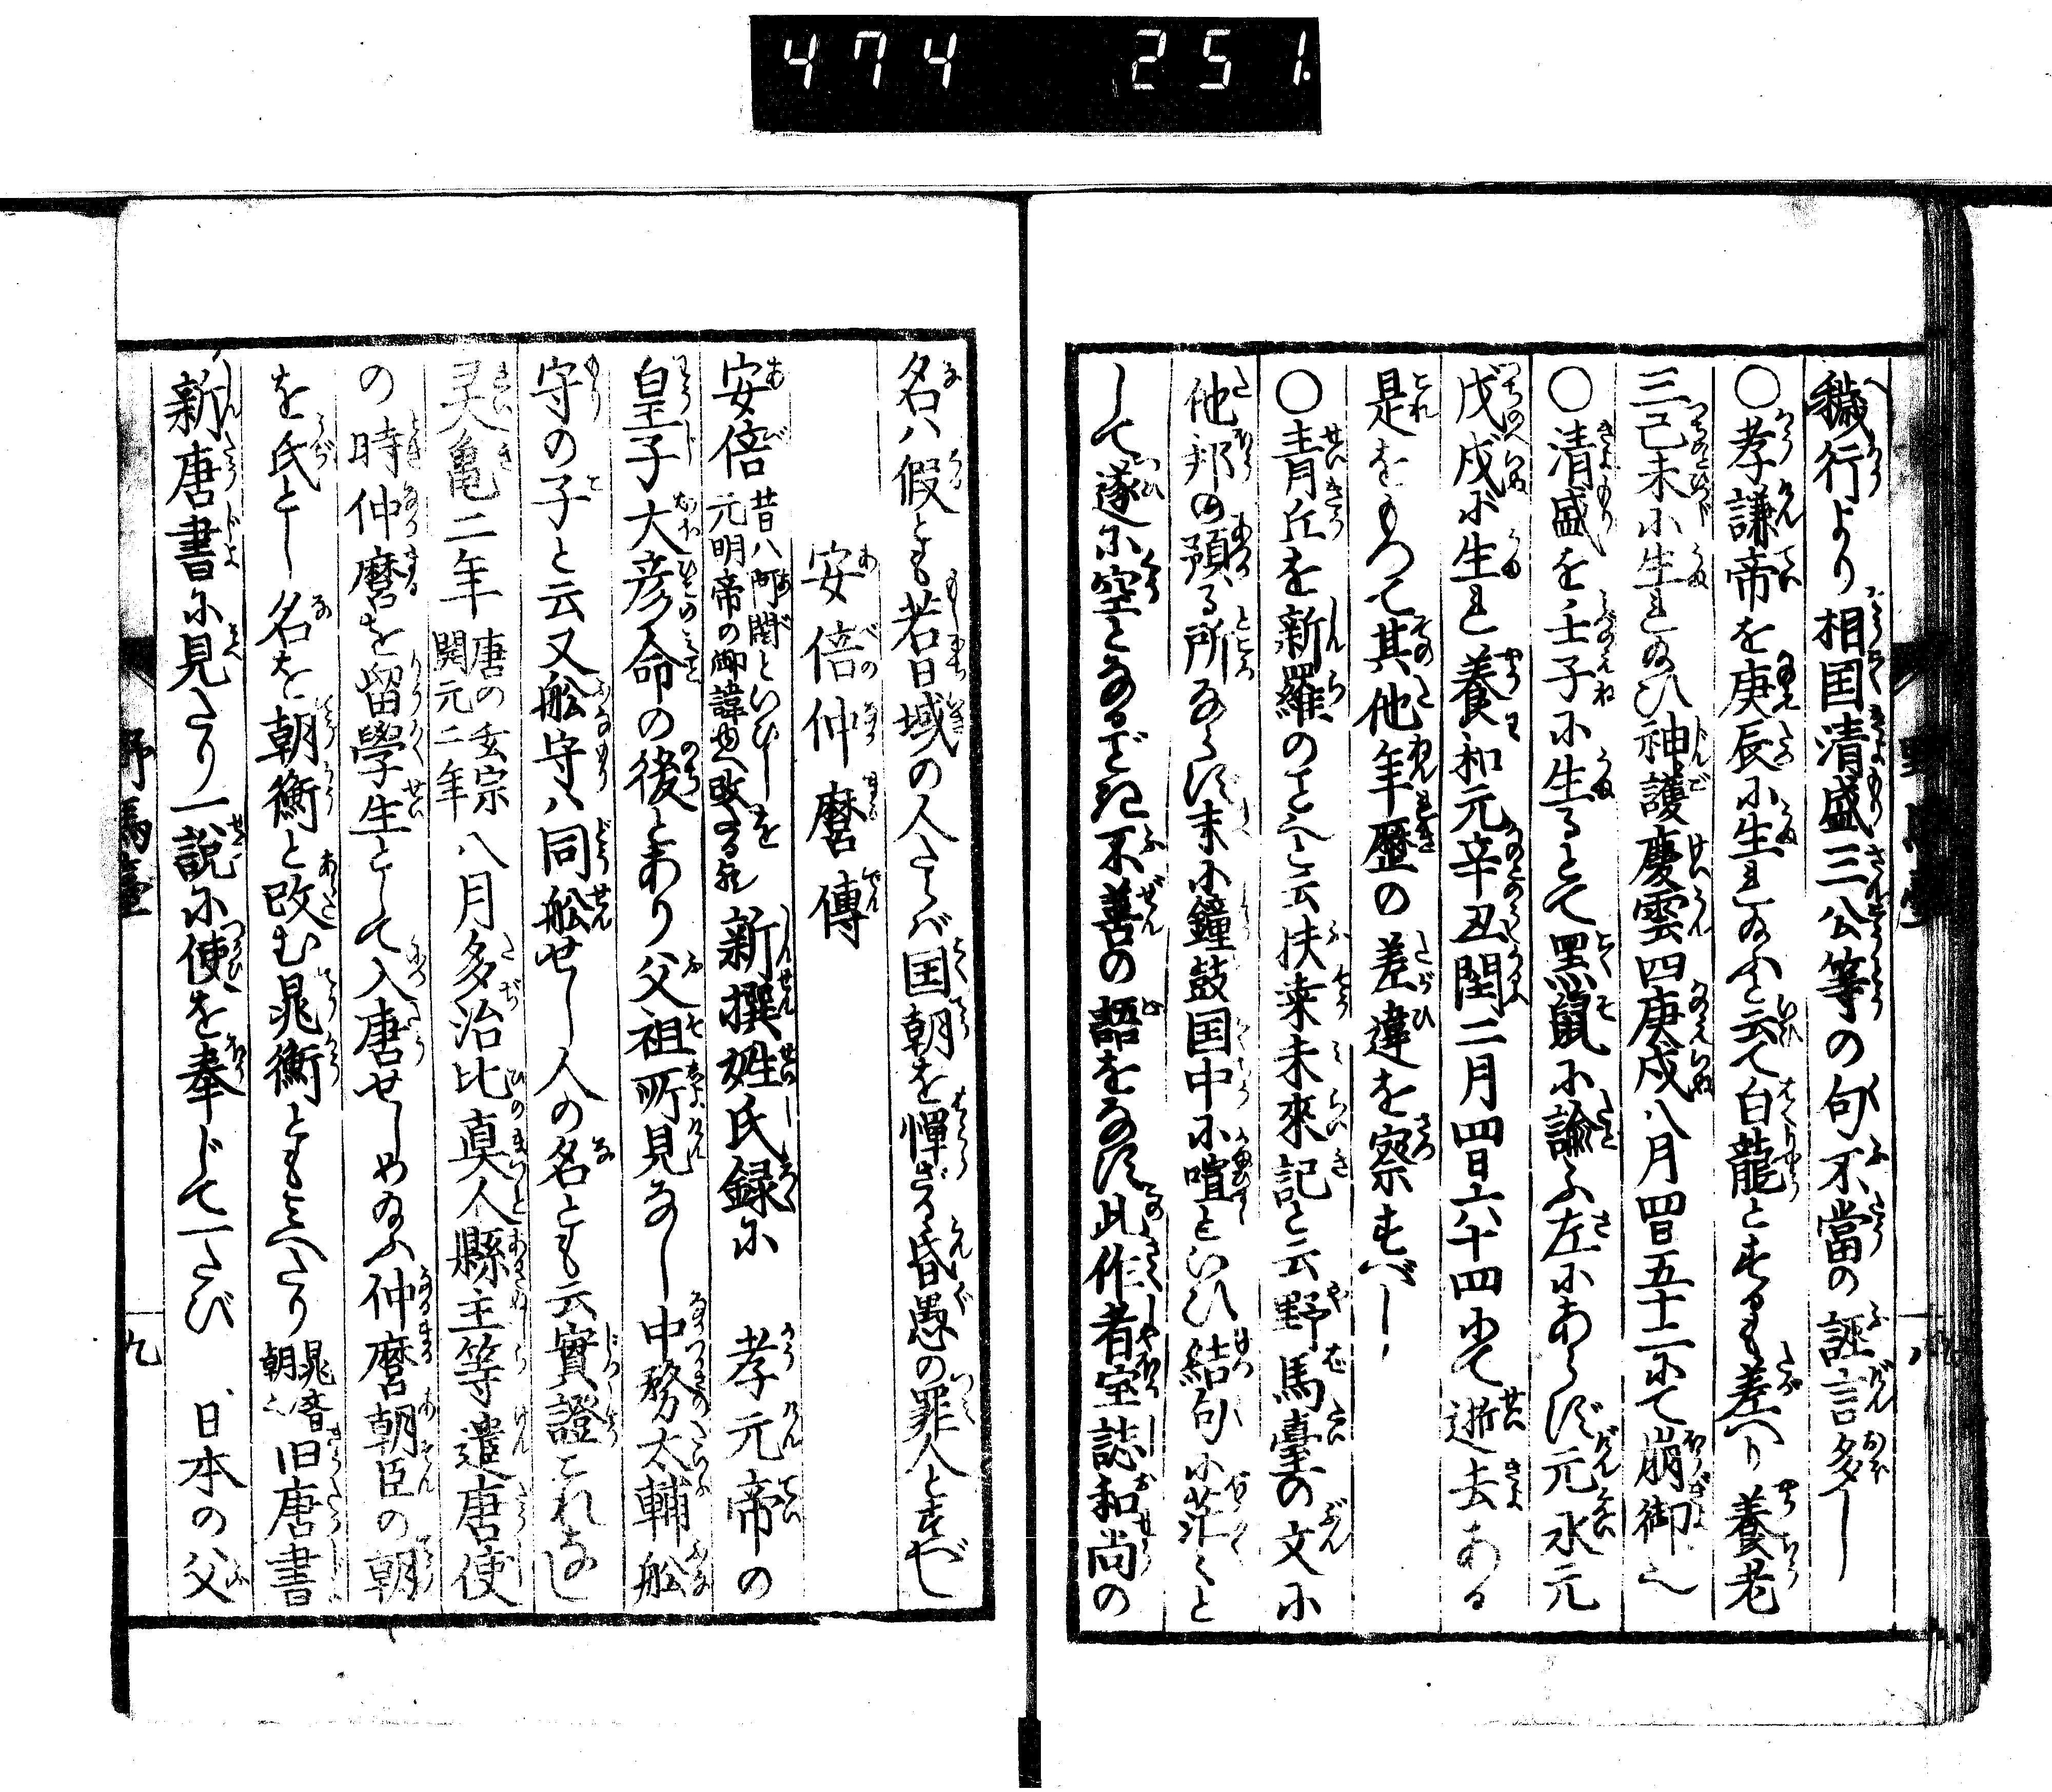 474 251.
穢行より相国清盛三公等の句不當の誣言多し
〇孝謙帝を庚辰に生れ給ふと云て白龍とするも差へり養老
三己未に生れ給ひ神護慶雲四庚戌八月四日五十二にて崩御也
〇清盛を壬子に生るとて黒鼠に諭ふ左にあらず元永元
戊戌に生れ養和元辛丑閏二月四日六十四歩て逝去ある
是をもつて其他年歴の差違を察すべし
〇青丘を新羅のことと云扶桒未來記と云野馬臺の文に
他邦の預る所ならず末に鐘鼓国中に喧といひ結句に茫々と
して遂に空となるなど不善の語をなす此作者宝誌和尚の
名ハ假とも若日域の人たらバ国朝を憚ざる昏愚の罪人とすべし
安倍仲麿傳
安倍 昔ハ阿閇といひしを 元明帝の御諱也改る 新撰姓氏録に 孝元帝の
皇子大彦命の後とあり父祖所見なし中務太輔舩
守の子と云又舩守ハ同舩せし人の名とも云實證これなし
灵亀二年 唐の玄宗 開元二年 八月多治比真人縣主等遣唐使
の時仲麿を留學生として入唐せしめ給ふ仲麿朝臣の朝
を氏とし名を朝衡と改む晁衡とも云へり 晁音 朝也 旧唐書
新唐書に見たり一說に使を奉じて一たび 日本の父
野馬臺 九